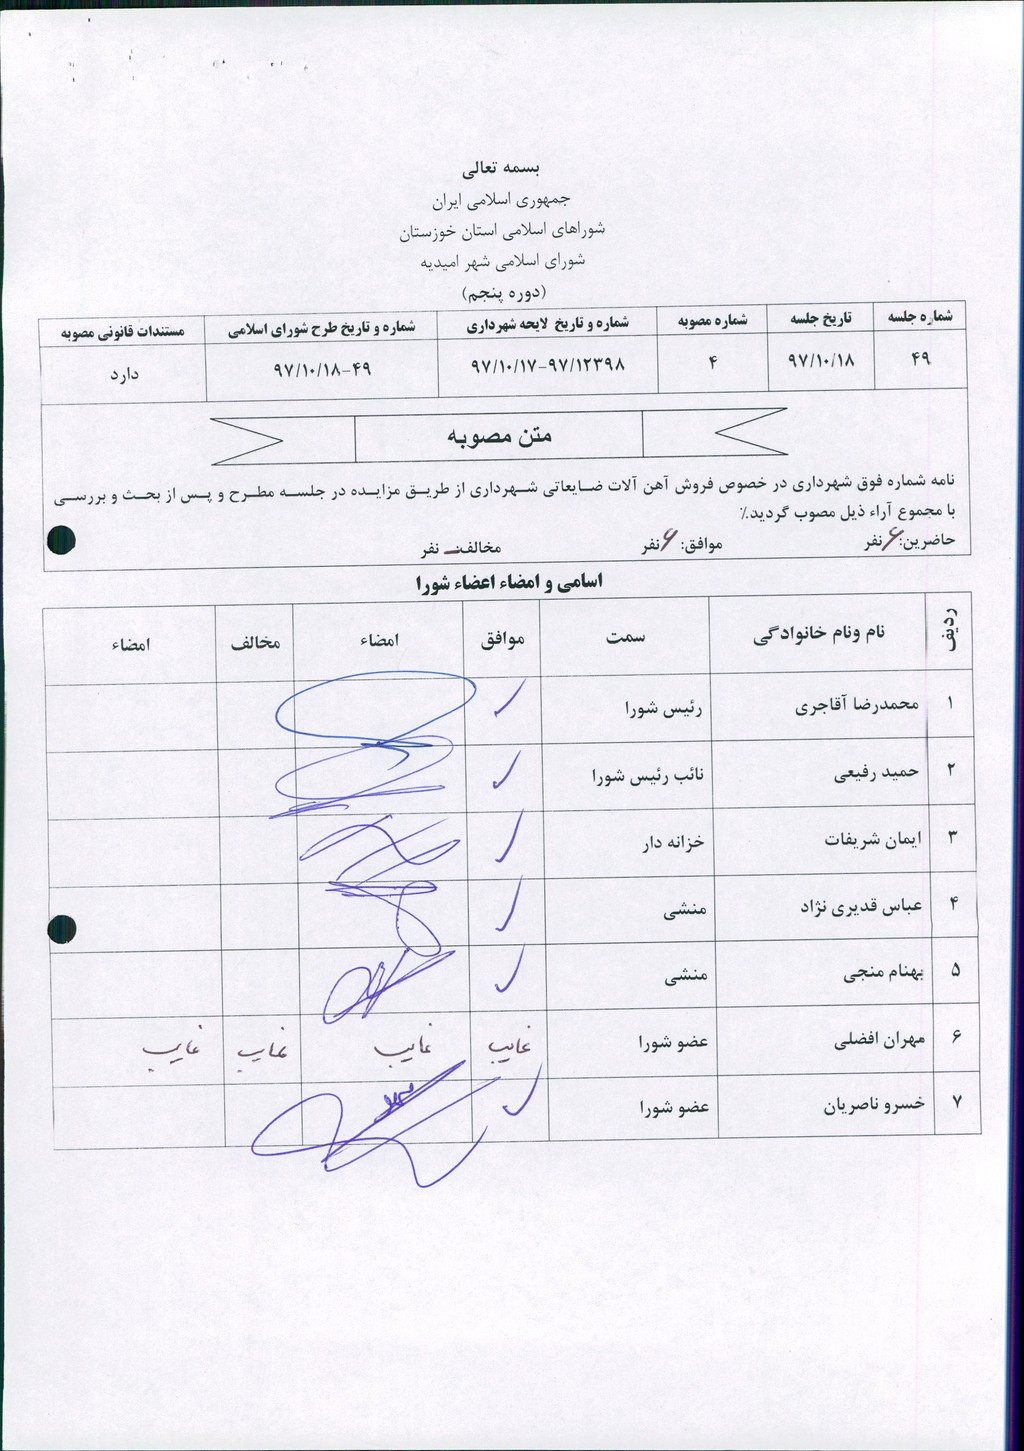 بسمه تعالی
جمهوری اسلامی ایران
شوراهای اسلامی استان خوزستان
شورای اسلامی شهر امیدیه
(دوره پنجم)
شماره جلسه تاریخ جلسه شماره مصوبه شماره و تاریخ لایحه شهرداری شماره و تاریخ طرح شورای اسلامی مستندات قانونی مصوبه
۴۹ ۹۷/۱۰/۱۸ ۴ ۹۷/۱۰/۱۷-۹۷/۱۲۳۹۸ ۹۷/۱۰/۱۸-۴۹ دارد
متن مصوبه
نامه شماره فوق شهرداری در خصوص فروش آهن آلات ضایعاتی شهرداری از طریق مزایده در جلسه مطرح و پس از بحث و بررسی
با مجموع آراء ذیل مصوب گردید.٪
حاضرین: ۶ نفر موافق: ۶ نفر مخالف: ـ نفر
اسامی و امضاء اعضاء شورا
ردیف نام ونام خانوادگی سمت موافق امضاء مخالف امضاء
۱ محمدرضا آقاجری رئیس شورا ✓
۲ حمید رفیعی نائب رئیس شورا ✓
۳ ایمان شریفات خزانه دار ✓
۴ عباس قدیری نژاد منشی ✓
۵ بهنام منجی منشی ✓
۶ مهران افضلی عضو شورا غایب غایب غایب غایب
۷ خسرو ناصریان عضو شورا ✓